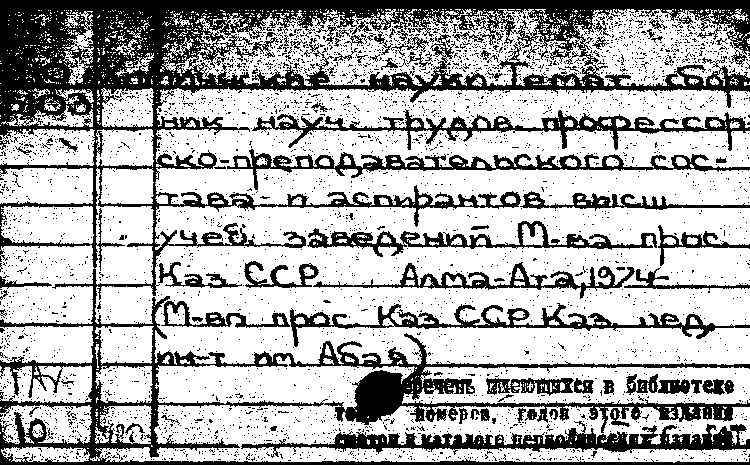 науки. Темат. сбор-
ник науч. трудов профессор-
ско-преподавательского сос-
тава и аспирантов высш.
учеб. заведений М-ва прос.
Каз ССР. Алма-Ата, 1974-
(М-во прос Каз ССР Каз. пед.
ин-т им. Абая)
Перечень имеющихся в библиотеке
номеров, годов этого издания
смотри в каталоге периодических изданий
10